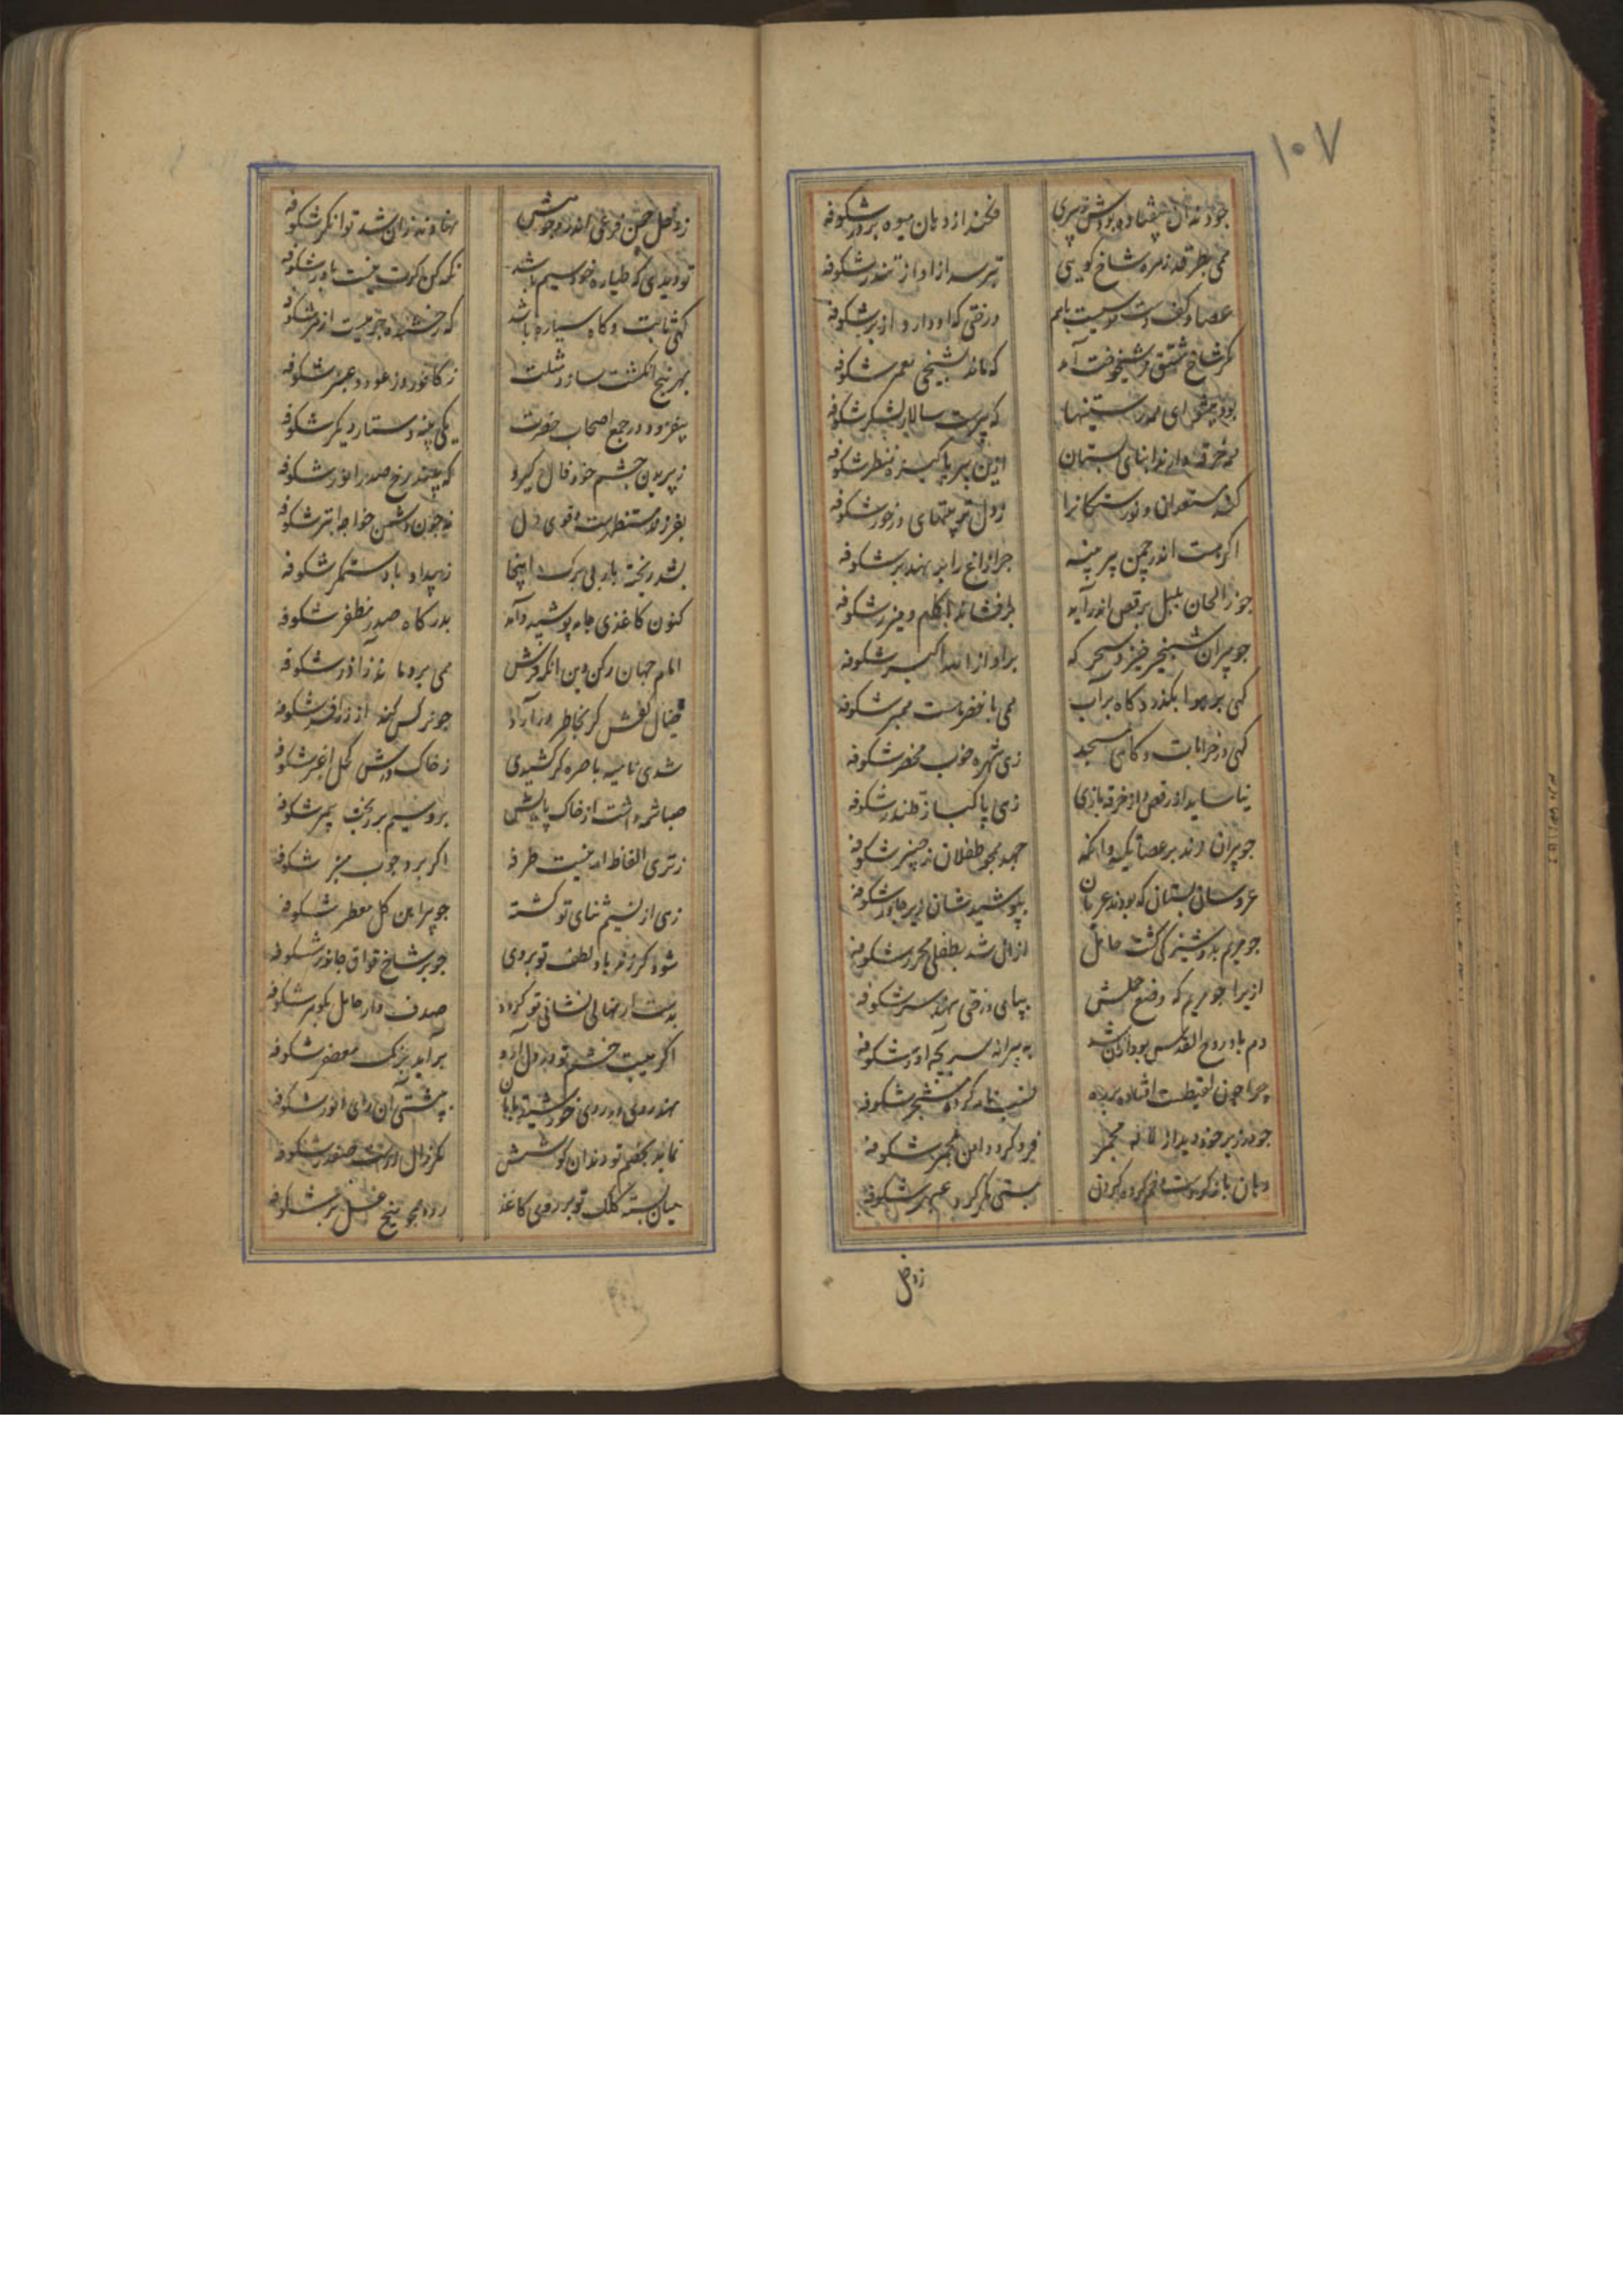 ۱۰۷
جو دندان بیفتاده بودش ز پیری
فکند از دهان میوه بر در شکوفه
همی بطرقد زمرد شاخ کویی
بترسد از اواز تندر شکوفه
عصا در کف دست بایم
درختی که او دارد از بر شکوفه
مکر شاخ شیخوخت آمد
که ماند بشیخی معمر شکوفه
بود پیشوای
که پیرست سالار لشکر شکوفه
نه خرقه دارند ابنای بستان
ازین پیر پاکیزه منظر شکوفه
کند مستعدان و نورستکانرا
ز دل توبتهای در خور شکوفه
اکر هست اندر چمن پیر پنبه
چرا زاغ را بر نهد بر شکوفه
جو ز الحان بلبل برقص اندر آید
طرف شاند کلیم و میزر شکوفه
جو پیران شبخیز خیزد سحر که
براواز الله اکبر شکوفه
کهی بر هوا بکذرد کاه بر آب
همی با خضر هست همبر شکوفه
کهی در خرابات و کاهی بمسجد
زهی شهره خوب مخضر شکوفه
نیاساید از رقص و از خرقه بازی
زهی پاکباز قلندر شکوفه
جو پیران زند بر عصا تکیه وانکه
جهد همجو طفلان ز چنبر شکوفه
عروسان بستان که بودند عریان
بپوشیدشان زیر جادر شکوفه
جو مریم بدوشیزکی کشت حامل
ازان شد بطفلی محرر شکوفه
ازیرا جو مریم که وضع حملش
بپای درختی نهد سر شکوفه
دم باد روح القدس بود ازان شد
به پیرانه سر بچه آور شکوفه
چرا چون لقیطست افتاده بر ره
نسب نامه کرده مشجر شکوفه
جو در زیر خود دید از لاله مجمر
فرو کرد دامن بمجمر شکوفه
دهان باز کردست و خم کرده کردن
مکر کرد عبهر شکوفه
ز وصل
ز وصل چمن فرغی اندر وجودش
نهادند زان شد توانکر شکوفه
تو دیدی که طیاره خود سیم باشد
نکه کن کرت نیست باور شکوفه
کهی ثابت و کاه سیاره باشد
که رخشنده تر نیست از شکوفه
بهر پنج انکشت سازد مثلث
ز کافور و از عود و عنبر شکوفه
بیفزود در جمع اصحاب حضرت
یکی پنبه دستار دیکر شکوفه
ز پریدن چشم خود فال کیرد
که بیند رخ صدر انور شکوفه
بفرزند مستظهرست و قوی دل
نه چون دشمن خواجه ابتر شکوفه
بشد ریخته بار بی برک اینجا
ز بیداد باد ستمکر شکوفه
کنون کاغذی جامه پوشید و آمد
بدرکاه صدر مظفر شکوفه
امام جهان رکن دین انکه فرش
همی بردماند ز آذر شکوفه
خیال کفش کر بخاطر در آرد
جو نرکس کند از زر افسر شکوفه
شدی نامیه باصره کر کشیدی
ز خاک درش کحل اغبر شکوفه
صبا شمه داشت از خاک پایش
برو سیم بر ریخت بیمر شکوفه
ز تری الفاظ او نیست طرفه
اکر بر دجوب منبر شکوفه
زهی از نسیم ثنای تو کشته
جو پیراهن کل معطر شکوفه
شود کر ز فر باد لطف تو بروی
جو بر شاخ قواق جانور شکوفه
بدست ار نهالی نشانی تو کردد
صدف وار حامل بکوهر شکوفه
اکر هیبت خشم تو در دل آرد
برآید برنک معصفر شکوفه
نهد روی در روی خورشید تابان
بپشتی آن رای انور شکوفه
نماید بخصم تو دندان کوشش
مکر زال شکوفه
میان بسته کلک تو بر روی کاغذ
رود همجو شکوفه